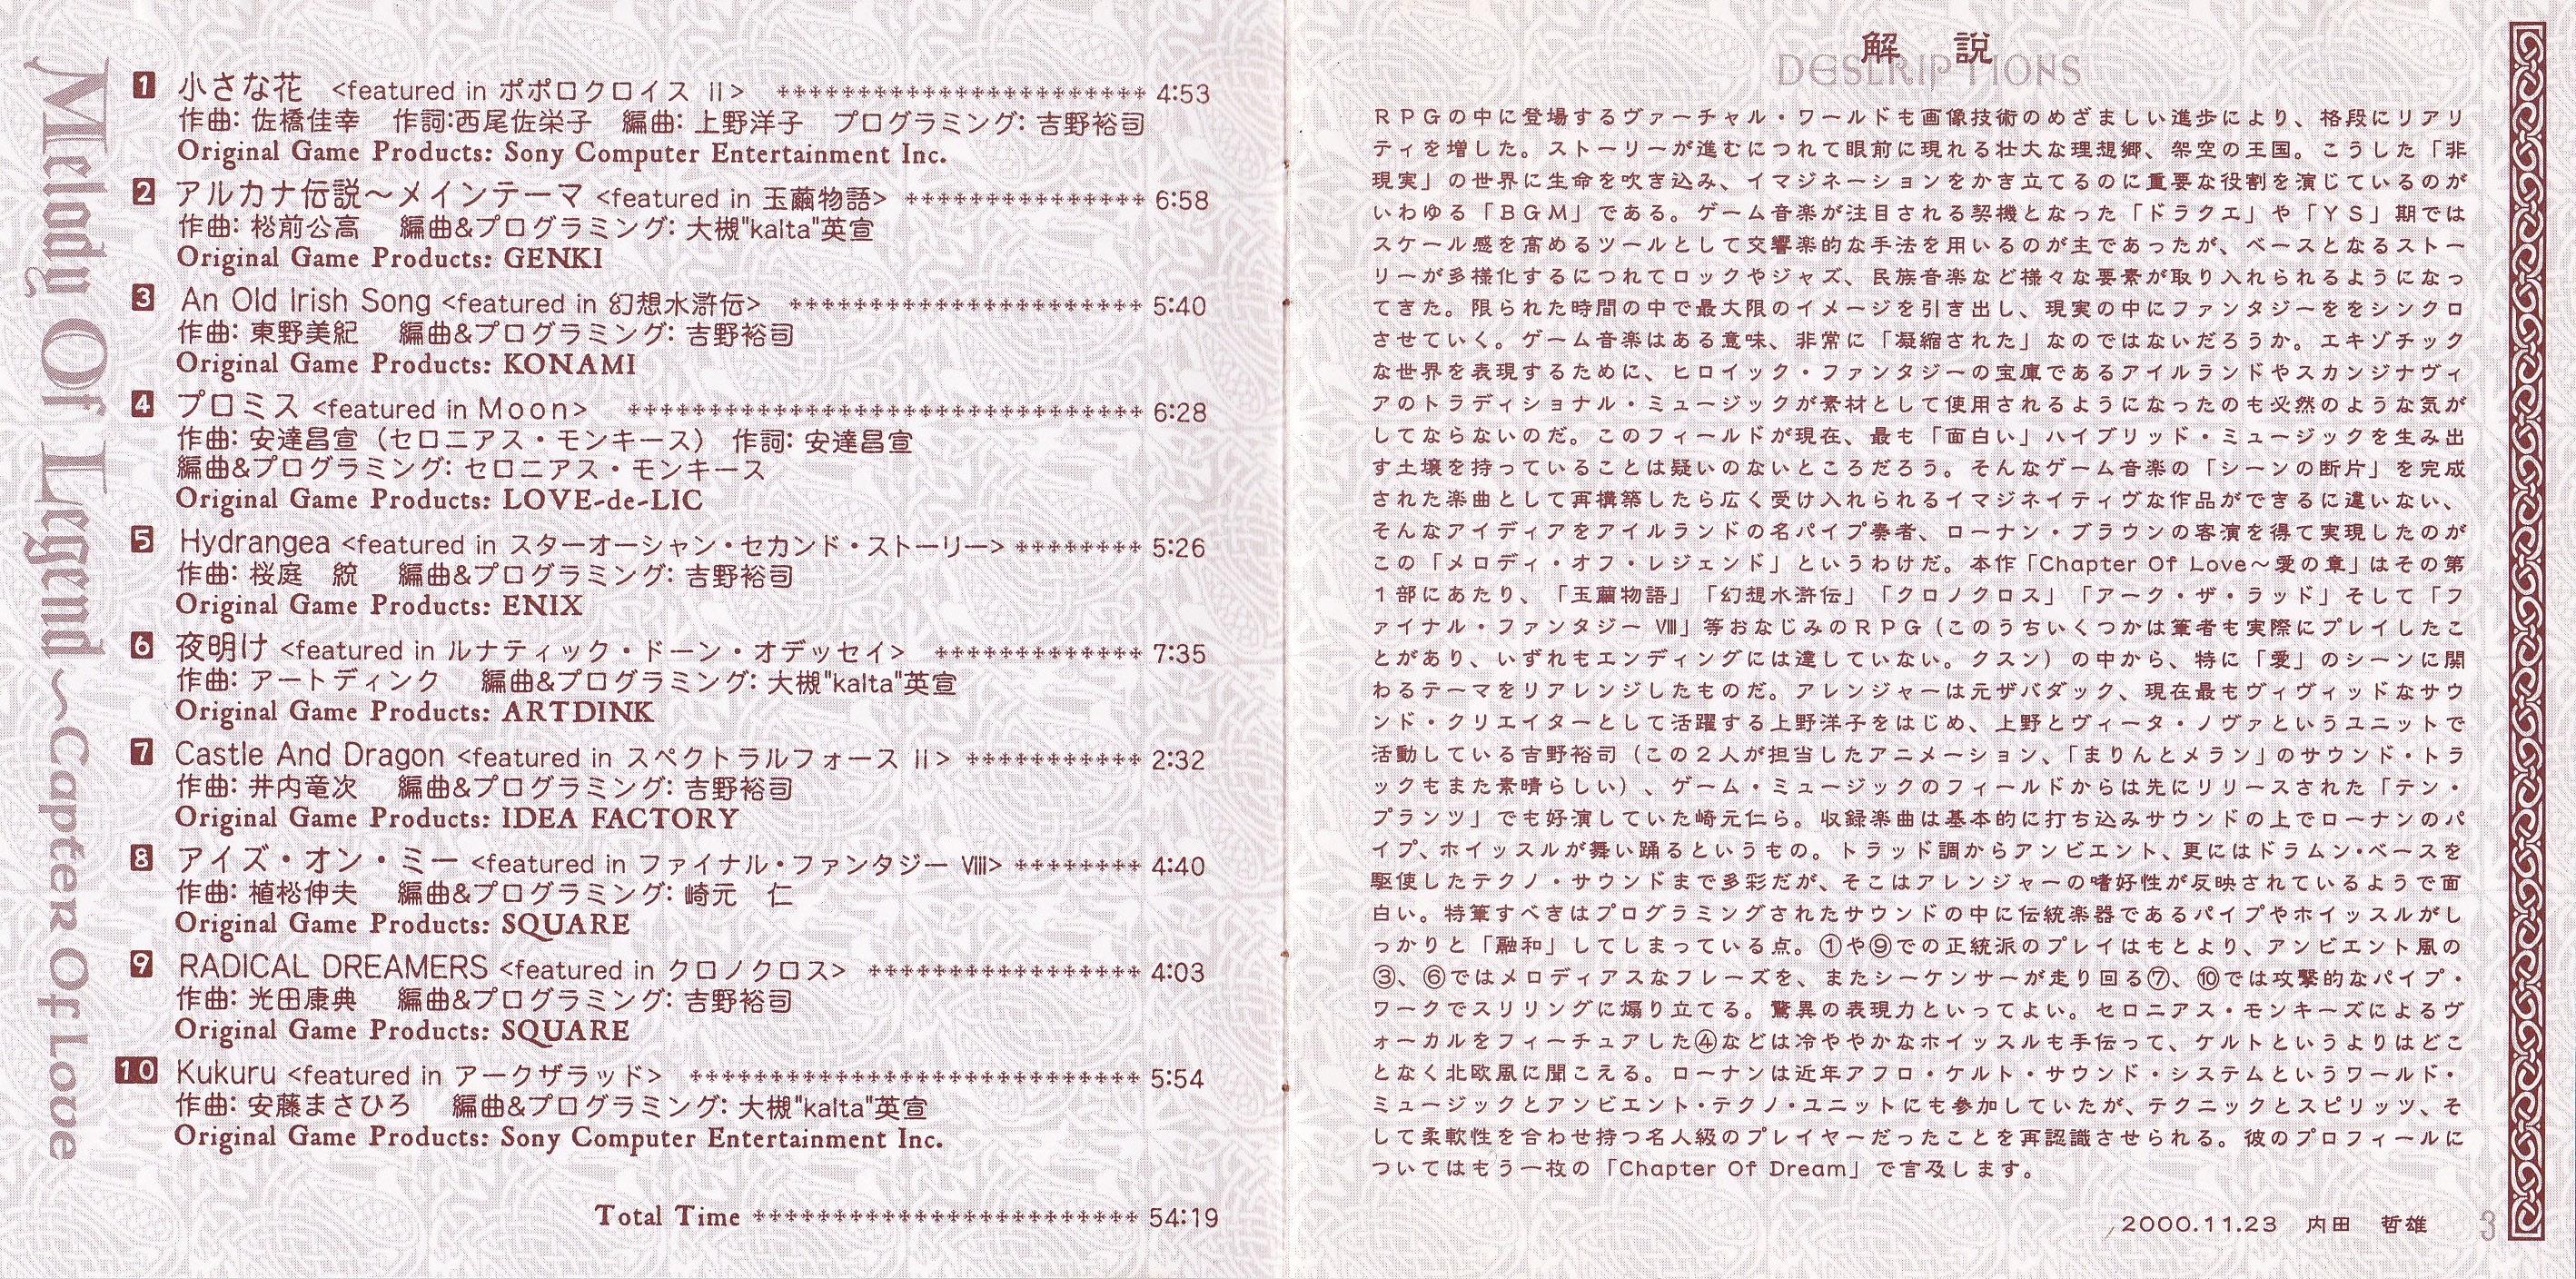 Melody Of Legend ～Capter Of Love
1 小さな花 <featured in ポポロクロイス II> 4:53
作曲: 佐橋佳幸 作詞:西尾佐栄子 編曲: 上野洋子 プログラミング: 吉野裕司
Original Game Products: Sony Computer Entertainment Inc.
2 アルカナ伝説～メインテーマ <featured in 玉繭物語> 6:58
作曲: 松前公高 編曲&プログラミング: 大槻"kalta"英宣
Original Game Products: GENKI
3 An Old Irish Song <featured in 幻想水滸伝> 5:40
作曲: 東野美紀 編曲&プログラミング: 吉野裕司
Original Game Products: KONAMI
4 プロミス <featured in Moon> 6:28
作曲: 安達昌宣（セロニアス・モンキース） 作詞: 安達昌宣
編曲&プログラミング: セロニアス・モンキース
Original Game Products: LOVE-de-LIC
5 Hydrangea <featured in スターオーシャン・セカンド・ストーリー> 5:26
作曲: 桜庭 統 編曲&プログラミング: 吉野裕司
Original Game Products: ENIX
6 夜明け <featured in ルナティック・ドーン・オデッセイ> 7:35
作曲: アートディンク 編曲&プログラミング: 大槻"kalta"英宣
Original Game Products: ARTDINK
7 Castle And Dragon <featured in スペクトラルフォース II> 2:32
作曲: 井内竜次 編曲&プログラミング: 吉野裕司
Original Game Products: IDEA FACTORY
8 アイズ・オン・ミー <featured in ファイナル・ファンタジー Ⅷ> 4:40
作曲: 植松伸夫 編曲&プログラミング: 崎元 仁
Original Game Products: SQUARE
9 RADICAL DREAMERS <featured in クロノクロス> 4:03
作曲: 光田康典 編曲&プログラミング: 吉野裕司
Original Game Products: SQUARE
10 Kukuru <featured in アークザラッド> 5:54
作曲: 安藤まさひろ 編曲&プログラミング: 大槻"kalta"英宣
Original Game Products: Sony Computer Entertainment Inc.
Total Time 54:19
解 説
DESCRIPTIONS
ＲＰＧの中に登場するヴァーチャル・ワールドも画像技術のめざましい進歩により、格段にリアリ
ティを増した。ストーリーが進むにつれて眼前に現れる壮大な理想郷、架空の王国。こうした「非
現実」の世界に生命を吹き込み、イマジネーションをかき立てるのに重要な役割を演じているのが
いわゆる「ＢＧＭ」である。ゲーム音楽が注目される契機となった「ドラクエ」や「ＹＳ」期では
スケール感を高めるツールとして交響楽的な手法を用いるのが主であったが、ベースとなるストー
リーが多様化するにつれてロックやジャズ、民族音楽など様々な要素が取り入れられるようになっ
てきた。限られた時間の中で最大限のイメージを引き出し、現実の中にファンタジーををシンクロ
させていく。ゲーム音楽はある意味、非常に「凝縮された」なのではないだろうか。エキゾチック
な世界を表現するために、ヒロイック・ファンタジーの宝庫であるアイルランドやスカンジナヴィ
アのトラディショナル・ミュージックが素材として使用されるようになったのも必然のような気が
してならないのだ。このフィールドが現在、最も「面白い」ハイブリッド・ミュージックを生み出
す土壌を持っていることは疑いのないところだろう。そんなゲーム音楽の「シーンの断片」を完成
された楽曲として再構築したら広く受け入れられるイマジネイティヴな作品ができるに違いない、
そんなアイディアをアイルランドの名パイプ奏者、ローナン・ブラウンの客演を得て実現したのが
この「メロディ・オフ・レジェンド」というわけだ。本作「Chapter Of Love～愛の章」はその第
１部にあたり、「玉繭物語」「幻想水滸伝」「クロノクロス」「アーク・ザ・ラッド」そして「フ
ァイナル・ファンタジー Ⅷ」等おなじみのＲＰＧ（このうちいくつかは筆者も実際にプレイしたこ
とがあり、いずれもエンディングには達していない。クスン）の中から、特に「愛」のシーンに関
わるテーマをリアレンジしたものだ。アレンジャーは元ザバダック、現在最もヴィヴィッドなサウ
ンド・クリエイターとして活躍する上野洋子をはじめ、上野とヴィータ・ノヴァというユニットで
活動している吉野裕司（この２人が担当したアニメーション、「まりんとメラン」のサウンド・トラ
ックもまた素晴らしい）、ゲーム・ミュージックのフィールドからは先にリリースされた「テン・
プランツ」でも好演していた崎元仁ら。収録楽曲は基本的に打ち込みサウンドの上でローナンのパ
イプ、ホイッスルが舞い踊るというもの。トラッド調からアンビエント、更にはドラムン・ベースを
駆使したテクノ・サウンドまで多彩だが、そこはアレンジャーの嗜好性が反映されているようで面
白い。特筆すべきはプログラミングされたサウンドの中に伝統楽器であるパイプやホイッスルがし
っかりと「融和」してしまっている点。①や⑨での正統派のプレイはもとより、アンビエント風の
③、⑥ではメロディアスなフレーズを、またシーケンサーが走り回る⑦、⑩では攻撃的なパイプ・
ワークでスリリングに煽り立てる。驚異の表現力といってよい。セロニアス・モンキーズによるヴ
ォーカルをフィーチュアした④などは冷ややかなホイッスルも手伝って、ケルトというよりはどこ
となく北欧風に聞こえる。ローナンは近年アフロ・ケルト・サウンド・システムというワールド・
ミュージックとアンビエント・テクノ・ユニットにも参加していたが、テクニックとスピリッツ、そ
して柔軟性を合わせ持つ名人級のプレイヤーだったことを再認識させられる。彼のプロフィールに
ついてはもう一枚の「Chapter Of Dream」で言及します。
2000.11.23 内田 哲雄
3